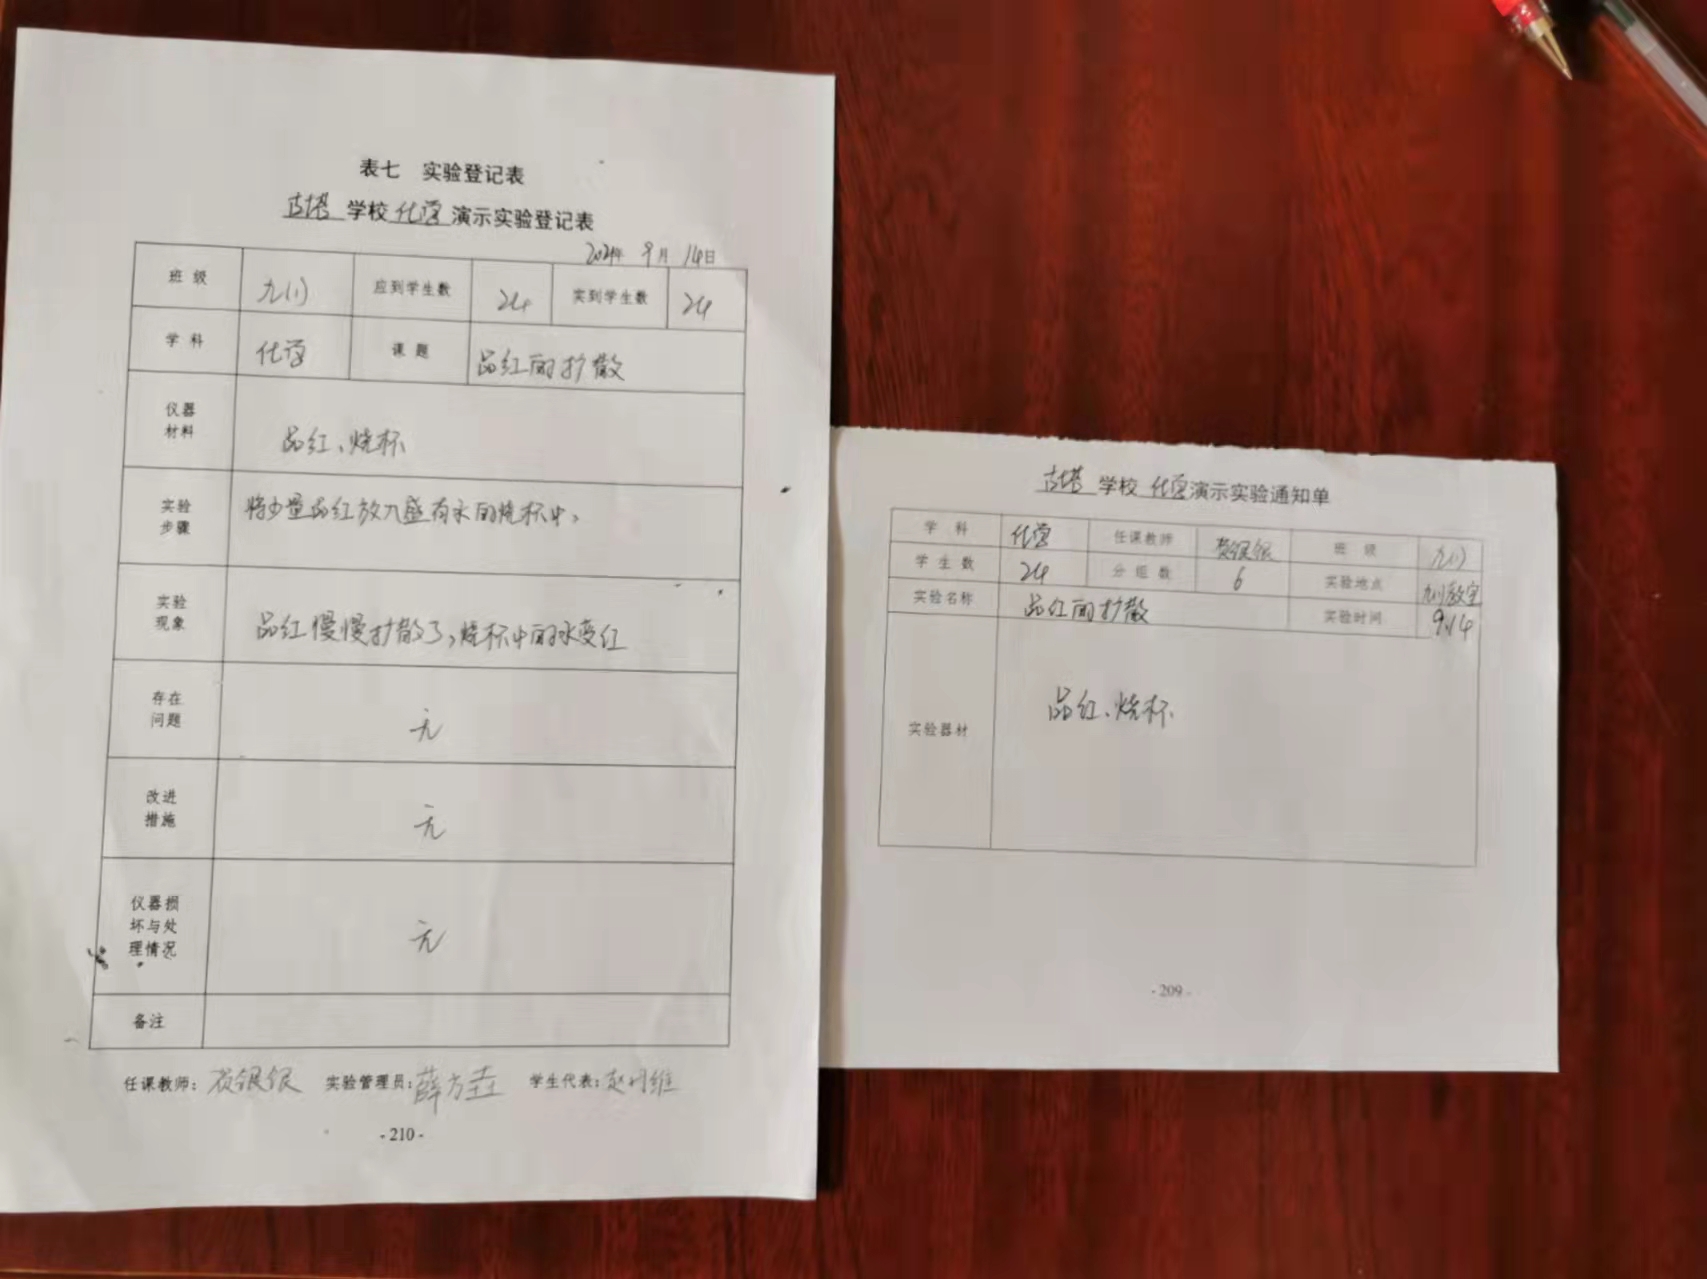 表七 实验登记表
古塔 学校 化学 演示实验登记表
9月 14日
班级 九(1) 应到学生数 24 实到学生数 24
学科 化学 课题 品红的扩散
仪器材料 品红、烧杯
实验步骤 将少量品红放入盛有水的烧杯中,
实验现象 品红慢慢扩散了,烧杯中的水变红
存在问题 无
改进措施 无
仪器损坏与处理情况 无
备注
任课教师: 银银 实验管理员: 薛方 学生代表: 赵
-210-
古塔 学校 化学 演示实验通知单
学科 化学 任课教师 银银 班级 九(1)
学生数 24 分组数 6 实验地点 九(1)教室
实验名称 品红的扩散 实验时间 9.14
实验器材 品红、烧杯
-209-